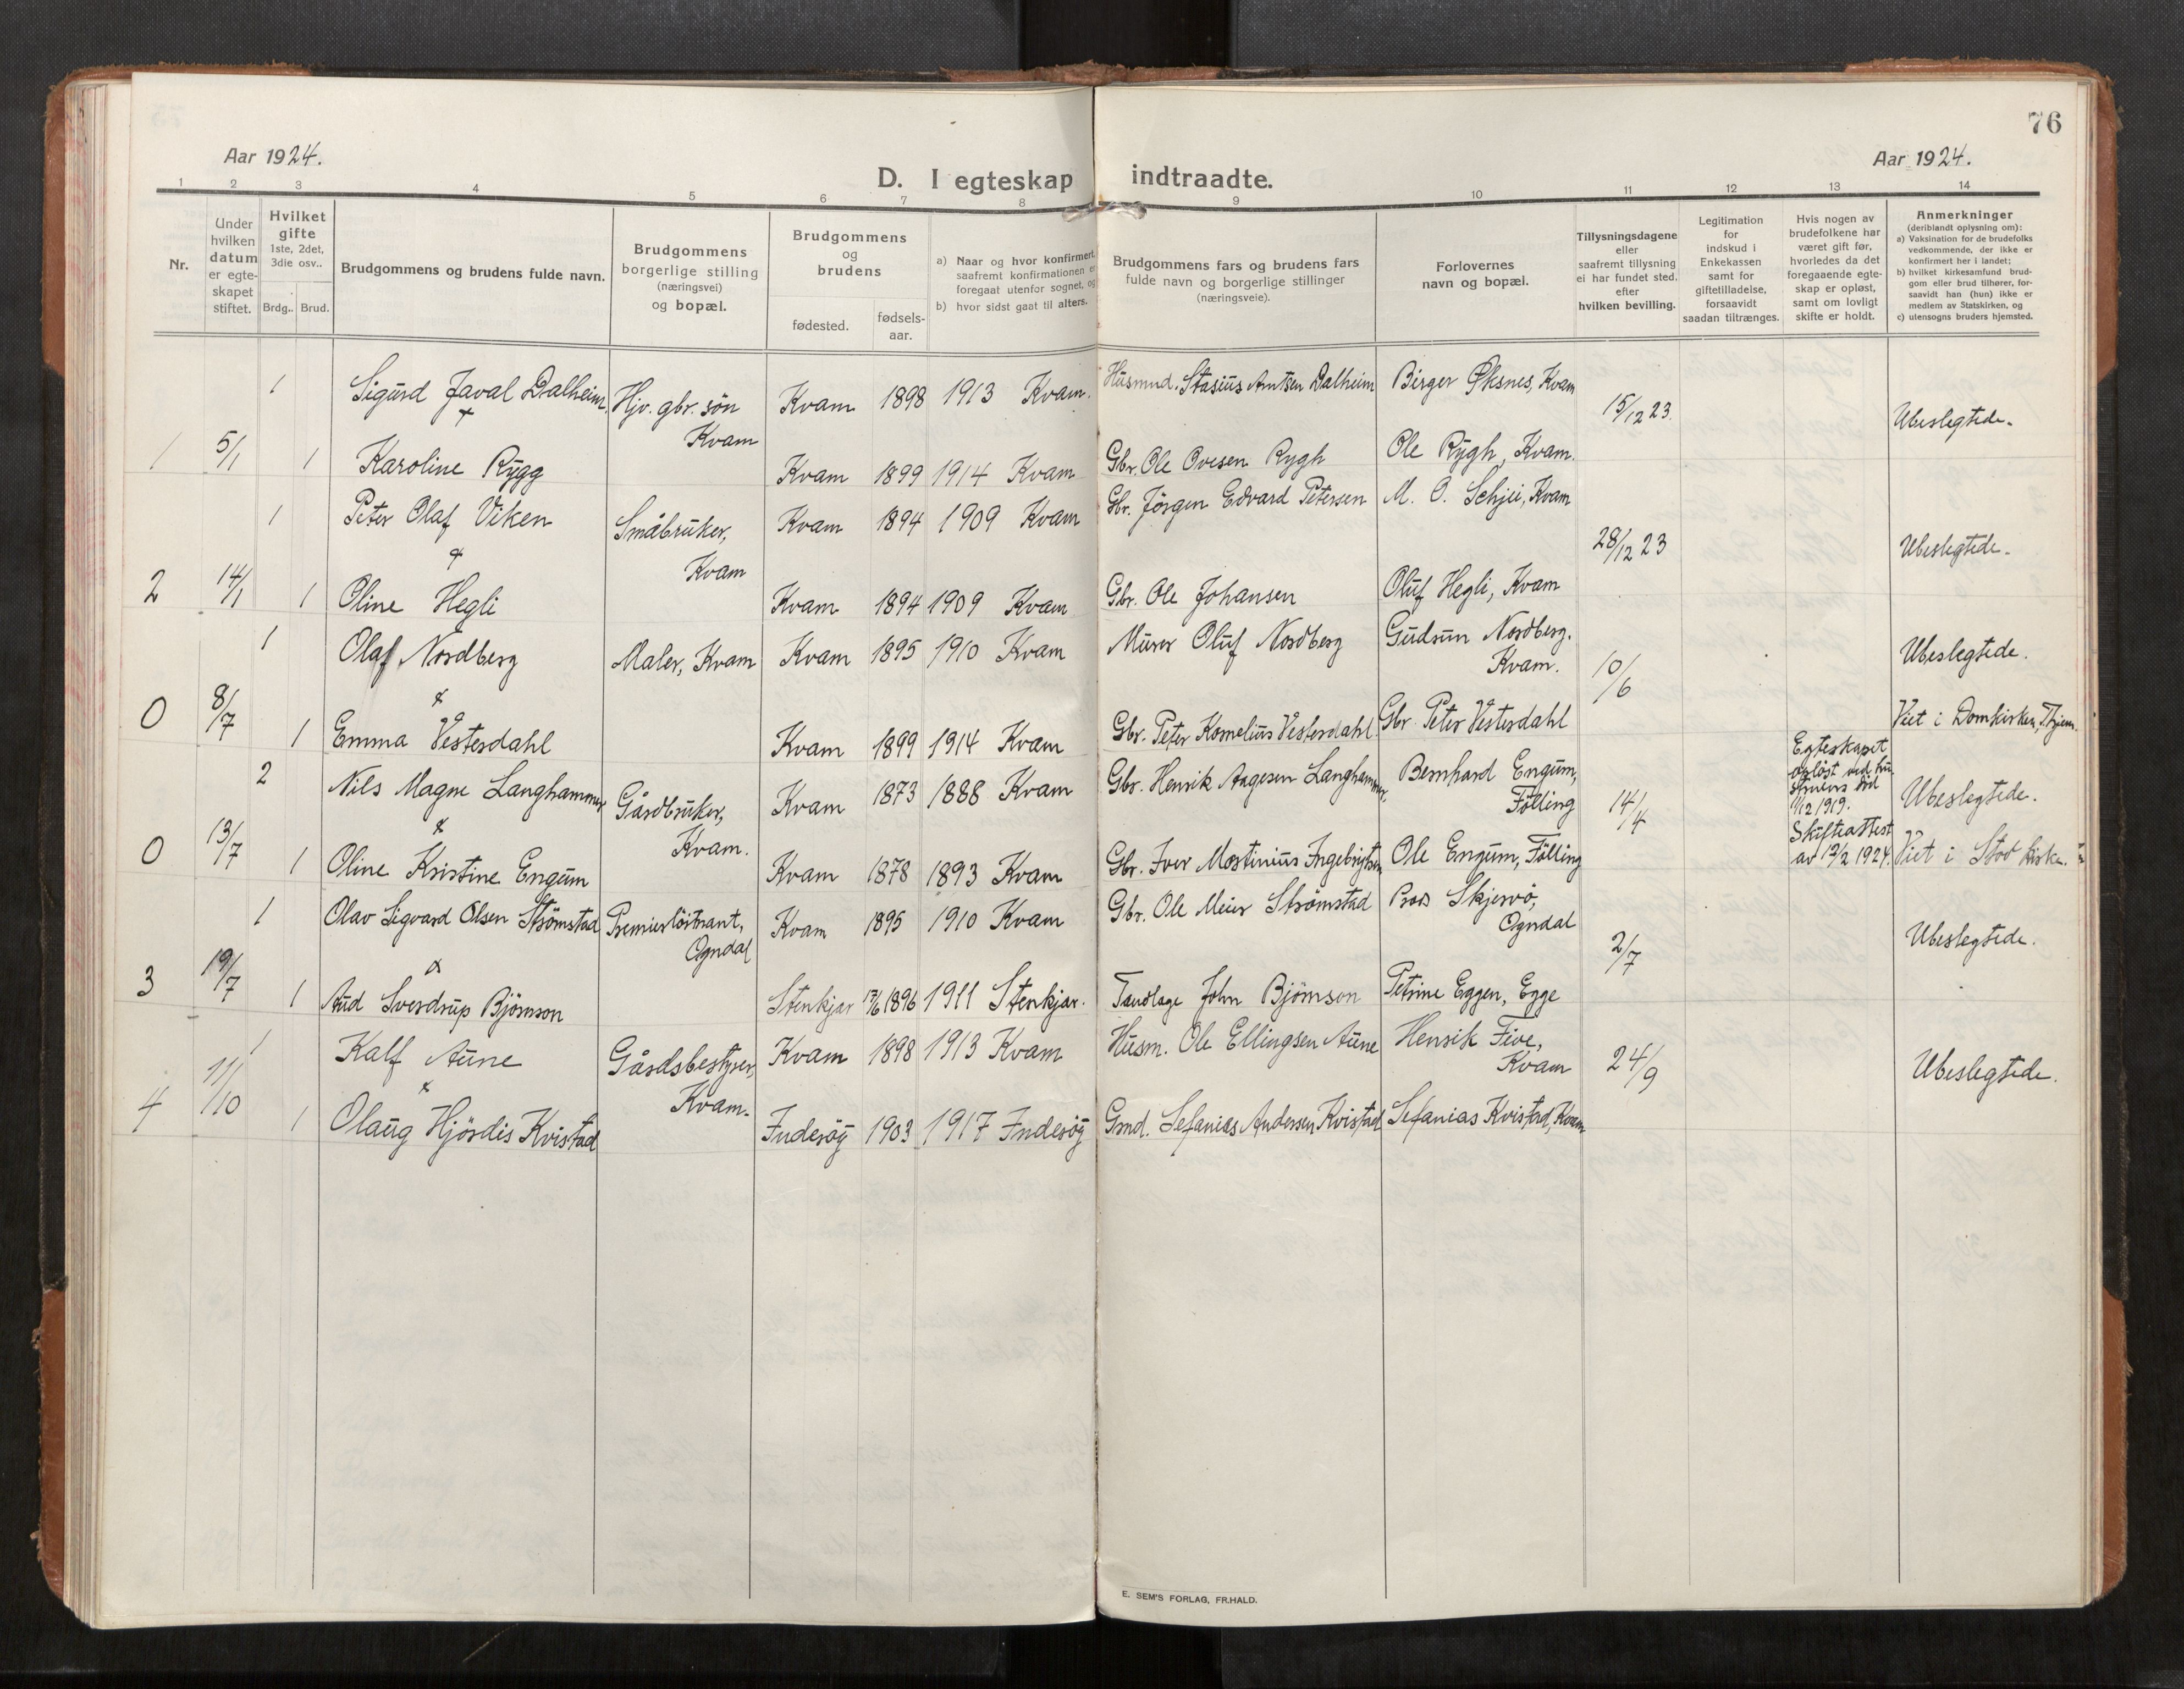 76
Aar 1924.
Aar 1924.
D. I egteskap indtraadte.
1 2 3 4 5 6 7 8 9 10 11 12 13 14
Nr.
Under hvilken datum er egteskapet stiftet.
Hvilket gifte 1ste, 2det, 3die osv..
Brdg.. Brud.
Brudgommens og brudens fulde navn.
Brudgommens borgerlige stilling (næringsvei) og bopæl.
Brudgommens og brudens
fødested.
fødselsaar.
a) Naar og hvor konfirmert, saafremt konfirmationen er foregaat utenfor sognet, og
b) hvor sidst gaat til alters.
Brudgommens fars og brudens fars fulde navn og borgerlige stillinger (næringsveie).
Forlovernes navn og bopæl.
Tillysningsdagene eller saafremt tillysning ei har fundet sted. efter hvilken bevilling.
Legitimation for indskud i Enkekassen samt for giftetilladelse, forsaavidt saadan tiltrænges.
Hvis nogen av brudefolkene har været gift før, hvorledes da det foregaaende egteskap er opløst, samt om lovligt skifte er holdt.
Anmerkninger (deriblandt oplysning om):
a) Vaksination for de brudefolks vedkommende, der ikke er konfirmert her i landet;
b) hvilket kirkesamfund brudgom eller brud tilhører, forsaavidt han (hun) ikke er medlem av Statskirken, og
c) utensogns bruders hjemsted.
1 Sigurd Javal Dalheim Hjv. gbr. søn Kvam Kvam 1898 1913 Kvam. Husmnd. Stasius Arntsen Dalheim Birger Øksnes, Kvam 15/12 23. Ubeslegtede.
&
1 5/1 1 Karoline Rygg Kvam 1899 1914 Kvam Gbr. Ole Ovesen Rygh Ole Rygh, Kvam.
1 Peter Olaf Viken Småbruker, Kvam Kvam 1894 1909 Kvam Gbr. Jörgen Edvard Petersen M. O. Schjei, Kvam 28/12 23 Ubeslegtede.
&
2 14/1 1 Oline Hegli Kvam 1894 1909 Kvam Gbr. Ole Johansen Oluf Hegli, Kvam
1 Olaf Nordberg Maler, Kvam Kvam 1895 1910 Kvam Murer Oluf Nordberg Gudrun Nordberg. Kvam. 10/6 Ubeslegtede.
&
0 8/7 1 Emma Vesterdahl Kvam 1899 1914 Kvam Gbr. Peter Kornelius Vesterdahl Gbr. Peter Vesterdahl Viet i Domkirken, Thjem.
2 Nils Magne Langhammer Gårdbruker, Kvam. Kvam 1873 1888 Kvam Gbr. Henrik Aagesen Langhammer, Bernhard Engum, Følling 14/4 Egteskapet opløst ved hustruens død 1/12 1919. Skifteattest av 12/2 1924. Ubeslegtede.
&
0 13/7 1 Oline Kristine Engum Kvam 1878 1893 Kvam Gbr. Iver Mortinius Ingebrigtsen Ole Engum, Følling Viet i Stod kirke.
1 Olav Sigvard Olsen Strømstad Premierløitnant, Ogndal Kvam 1895 1910 Kvam Gbr. Ole Meier Strømstad Skjervø, Ogndal 2/7 Ubeslegtede.
&
3 19/7 1 Aud Sverdrup Björnson Stenkjær 1896 1911 Stenkjær. Tandlæge John Björnson Petrine Eggen, Egge
1 Kalf Aune Gårdsbestyrer, Kvam. Kvam 1898 1913 Kvam Husm. Ole Ellingsen Aune Henrik Five, Kvam 24/9 Ubeslegtede.
&
4 11/10 1 Olaug Hjördis Kvistad Inderøy 1903 1917 Inderøy Grnd. Sefanias Andersen Kvistad Sefanias Kvistad, Kvam
E. SEM'S FORLAG, FR.HALD.